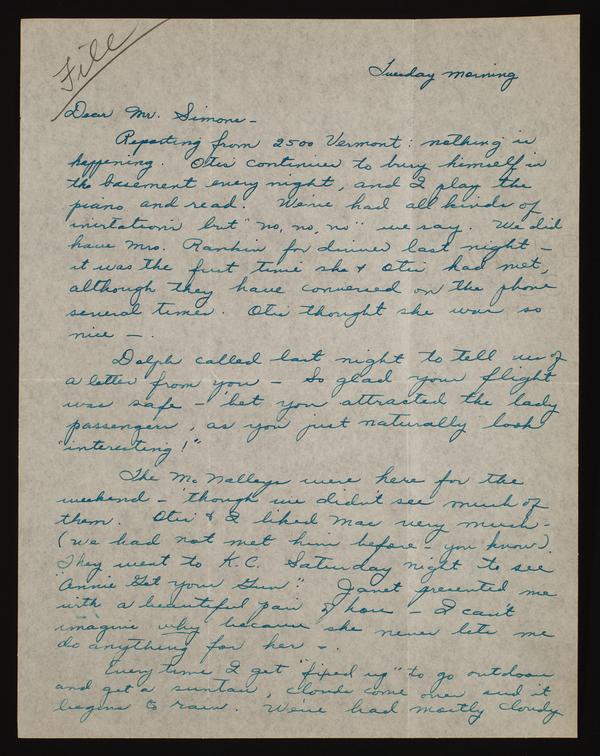 File
Tuesday morning
Dear Mr. Simons-
Reporting from 2500 Vermont: nothing is
happening. Otis continues to bury himself in
the basement every night, and I play the
piano and read. We've had all kinds of
invitations but "no, no, no" we say. We did
have Mrs. Rankin for dinner last night -
it was the first time she & Otis had met,
although they have conversed on the phone
several times. Otis thought she was so
nice -.
Dolph called last night to tell us of
a letter from you - So glad your flight
was safe - 'bet you attracted the lady
passengers, as you just naturally look
"interesting!"
The McNalleys were here for the
weekend - 'though we didn't see much of
them. Otis & I liked Mac very much -
(we had not met him before - you know).
They went to K.C. Saturday night to see
"Annie Get Your Gun". Janet presented me
with a beautiful pair of hose - I can't
imagine why because she never lets me
do anything for her -.
Every time I get "fixed up" to go outdoors
and get a suntan, clouds come over and it
begins to rain. We've had mostly cloudy